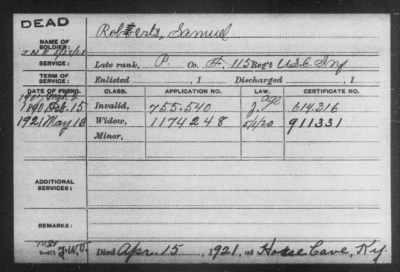 DEAD
NAME OF SOLDIER: Roberts, Samuel
Late rank, P. Co. F, 115 Reg't U.S.C. Inf
TERM OF SERVICE: Enlisted , 1 Discharged , 1
DATE OF FILING. CLASS. APPLICATION NO. LAW. CERTIFICATE NO.
1890 Feb. 15 Invalid, 755.540 614.316
1921 May 13 Widow, 1174248 5/1/20 911331
Minor,
ADDITIONAL SERVICES:
REMARKS:
Died Apr. 15, 1921, at Horse Cave, Ky.